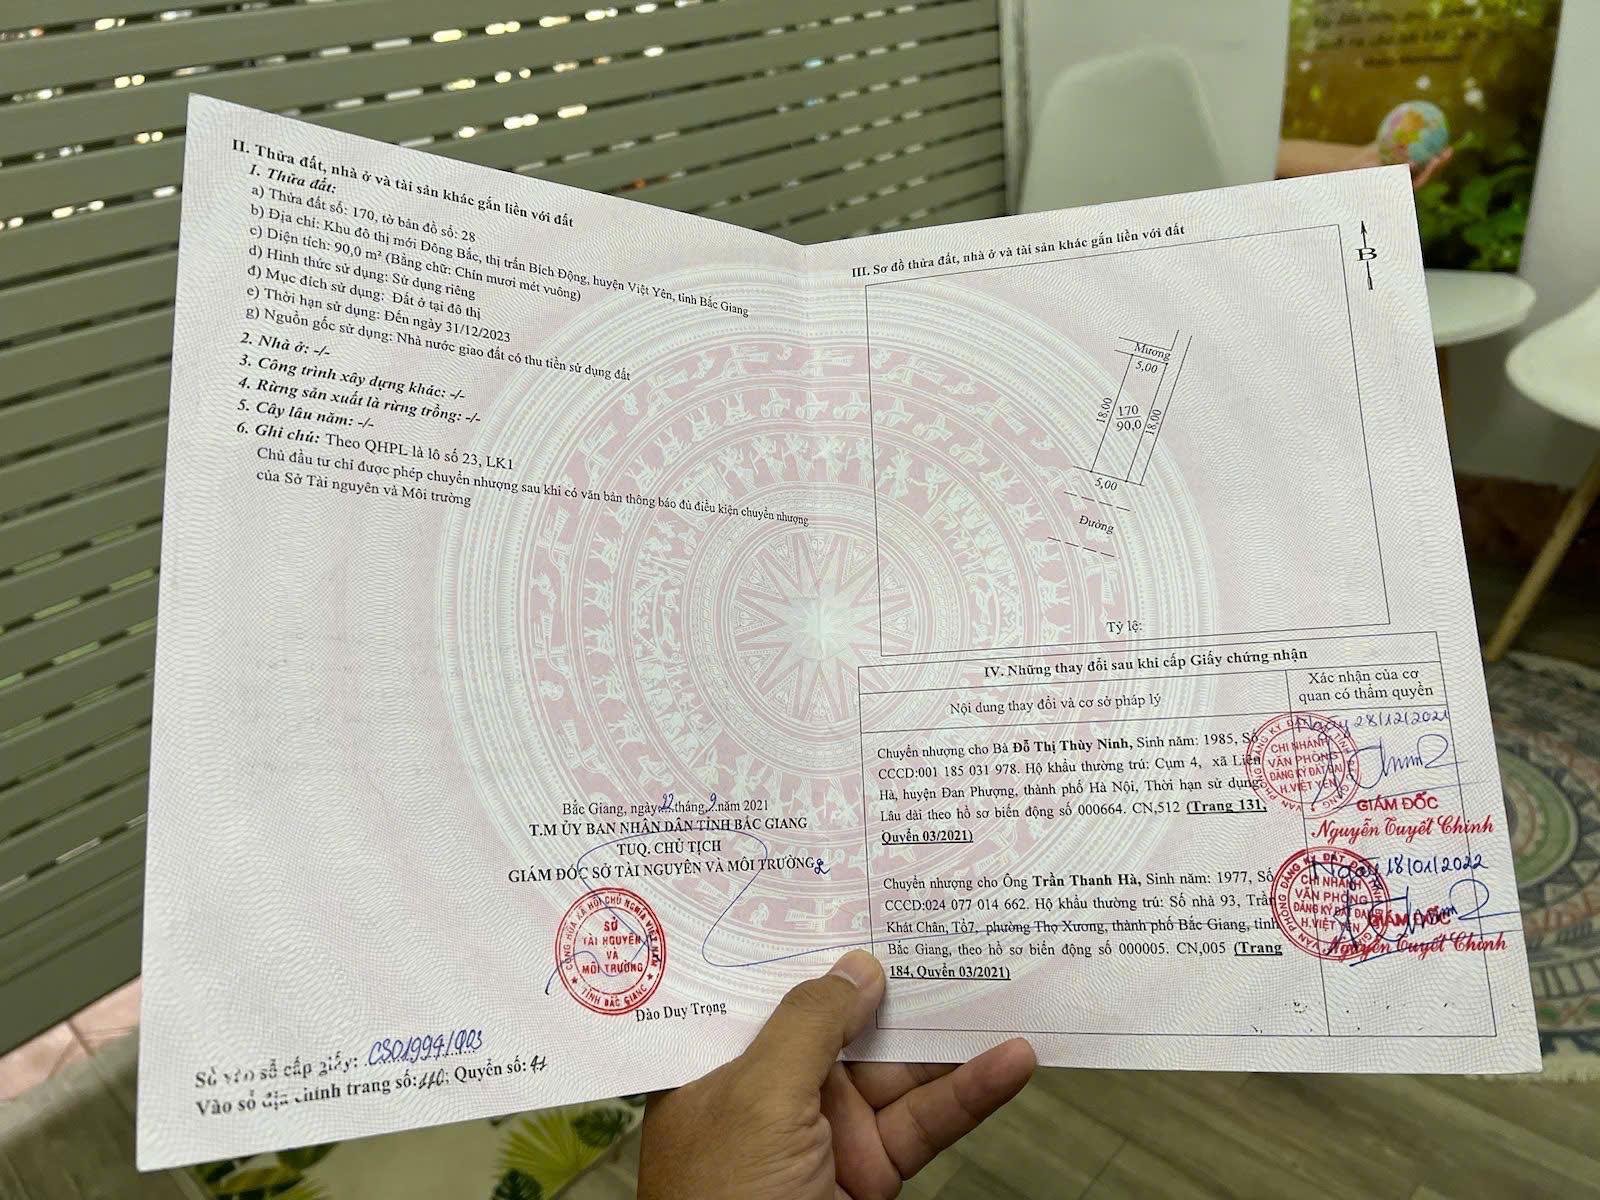 II. Thửa đất, nhà ở và tài sản khác gắn liền với đất
1. Thửa đất:
a) Thửa đất số: 170, tờ bản đồ số: 28
b) Địa chỉ: Khu đô thị mới Đông Bắc, thị trấn Bích Động, huyện Việt Yên, tỉnh Bắc Giang
c) Diện tích: 90,0 m² (Bằng chữ: Chín mươi mét vuông)
d) Hình thức sử dụng: Sử dụng riêng
đ) Mục đích sử dụng: Đất ở tại đô thị
e) Thời hạn sử dụng: Đến ngày 31/12/2023
g) Nguồn gốc sử dụng: Nhà nước giao đất có thu tiền sử dụng đất
2. Nhà ở: -/-
3. Công trình xây dựng khác: -/-
4. Rừng sản xuất là rừng trồng: -/-
5. Cây lâu năm: -/-
6. Ghi chú: Theo QHPL là lô số 23, LK1
Chủ đầu tư chỉ được phép chuyển nhượng sau khi có văn bản thông báo đủ điều kiện chuyển nhượng
của Sở Tài nguyên và Môi trường
Bắc Giang, ngày 22 tháng 9 năm 2021
T.M ỦY BAN NHÂN DÂN TỈNH BẮC GIANG
TUQ. CHỦ TỊCH
GIÁM ĐỐC SỞ TÀI NGUYÊN VÀ MÔI TRƯỜNG
CỘNG HÒA XÃ HỘI CHỦ NGHĨA VIỆT NAM
SỞ
TÀI NGUYÊN
VÀ
MÔI TRƯỜNG
TỈNH BẮC GIANG
Đào Duy Trọng
Số vào sổ cấp giấy: CS01994/QĐ3
Vào sổ địa chính trang số: 110; Quyển số: 41
III. Sơ đồ thửa đất, nhà ở và tài sản khác gắn liền với đất
B
Mương
5,00
18,00
170
90,0
18,00
5,00
Đường
Tỷ lệ:
IV. Những thay đổi sau khi cấp Giấy chứng nhận
Nội dung thay đổi và cơ sở pháp lý
Xác nhận của cơ
quan có thẩm quyền
Chuyển nhượng cho Bà Đỗ Thị Thùy Ninh, Sinh năm: 1985, Số
CCCD:001 185 031 978. Hộ khẩu thường trú: Cụm 4, xã Liên
Hà, huyện Đan Phượng, thành phố Hà Nội, Thời hạn sử dụng:
Lâu dài theo hồ sơ biến động số 000664. CN,512 (Trang 131,
Quyển 03/2021)
Ngày 28/12/2021
CHI NHÁNH
VĂN PHÒNG
ĐĂNG KÝ ĐẤT ĐAI
H.VIỆT YÊN
GIÁM ĐỐC
Nguyễn Tuyết Chinh
Chuyển nhượng cho Ông Trần Thanh Hà, Sinh năm: 1977, Số
CCCD:024 077 014 662. Hộ khẩu thường trú: Số nhà 93, Trần
Khát Chân, Tổ7, phường Thọ Xương, thành phố Bắc Giang, tỉnh
Bắc Giang, theo hồ sơ biến động số 000005. CN,005 (Trang
184, Quyển 03/2021)
Ngày 18/01/2022
CHI NHÁNH
VĂN PHÒNG
ĐĂNG KÝ ĐẤT ĐAI
H.VIỆT YÊN
GIÁM ĐỐC
Nguyễn Tuyết Chinh